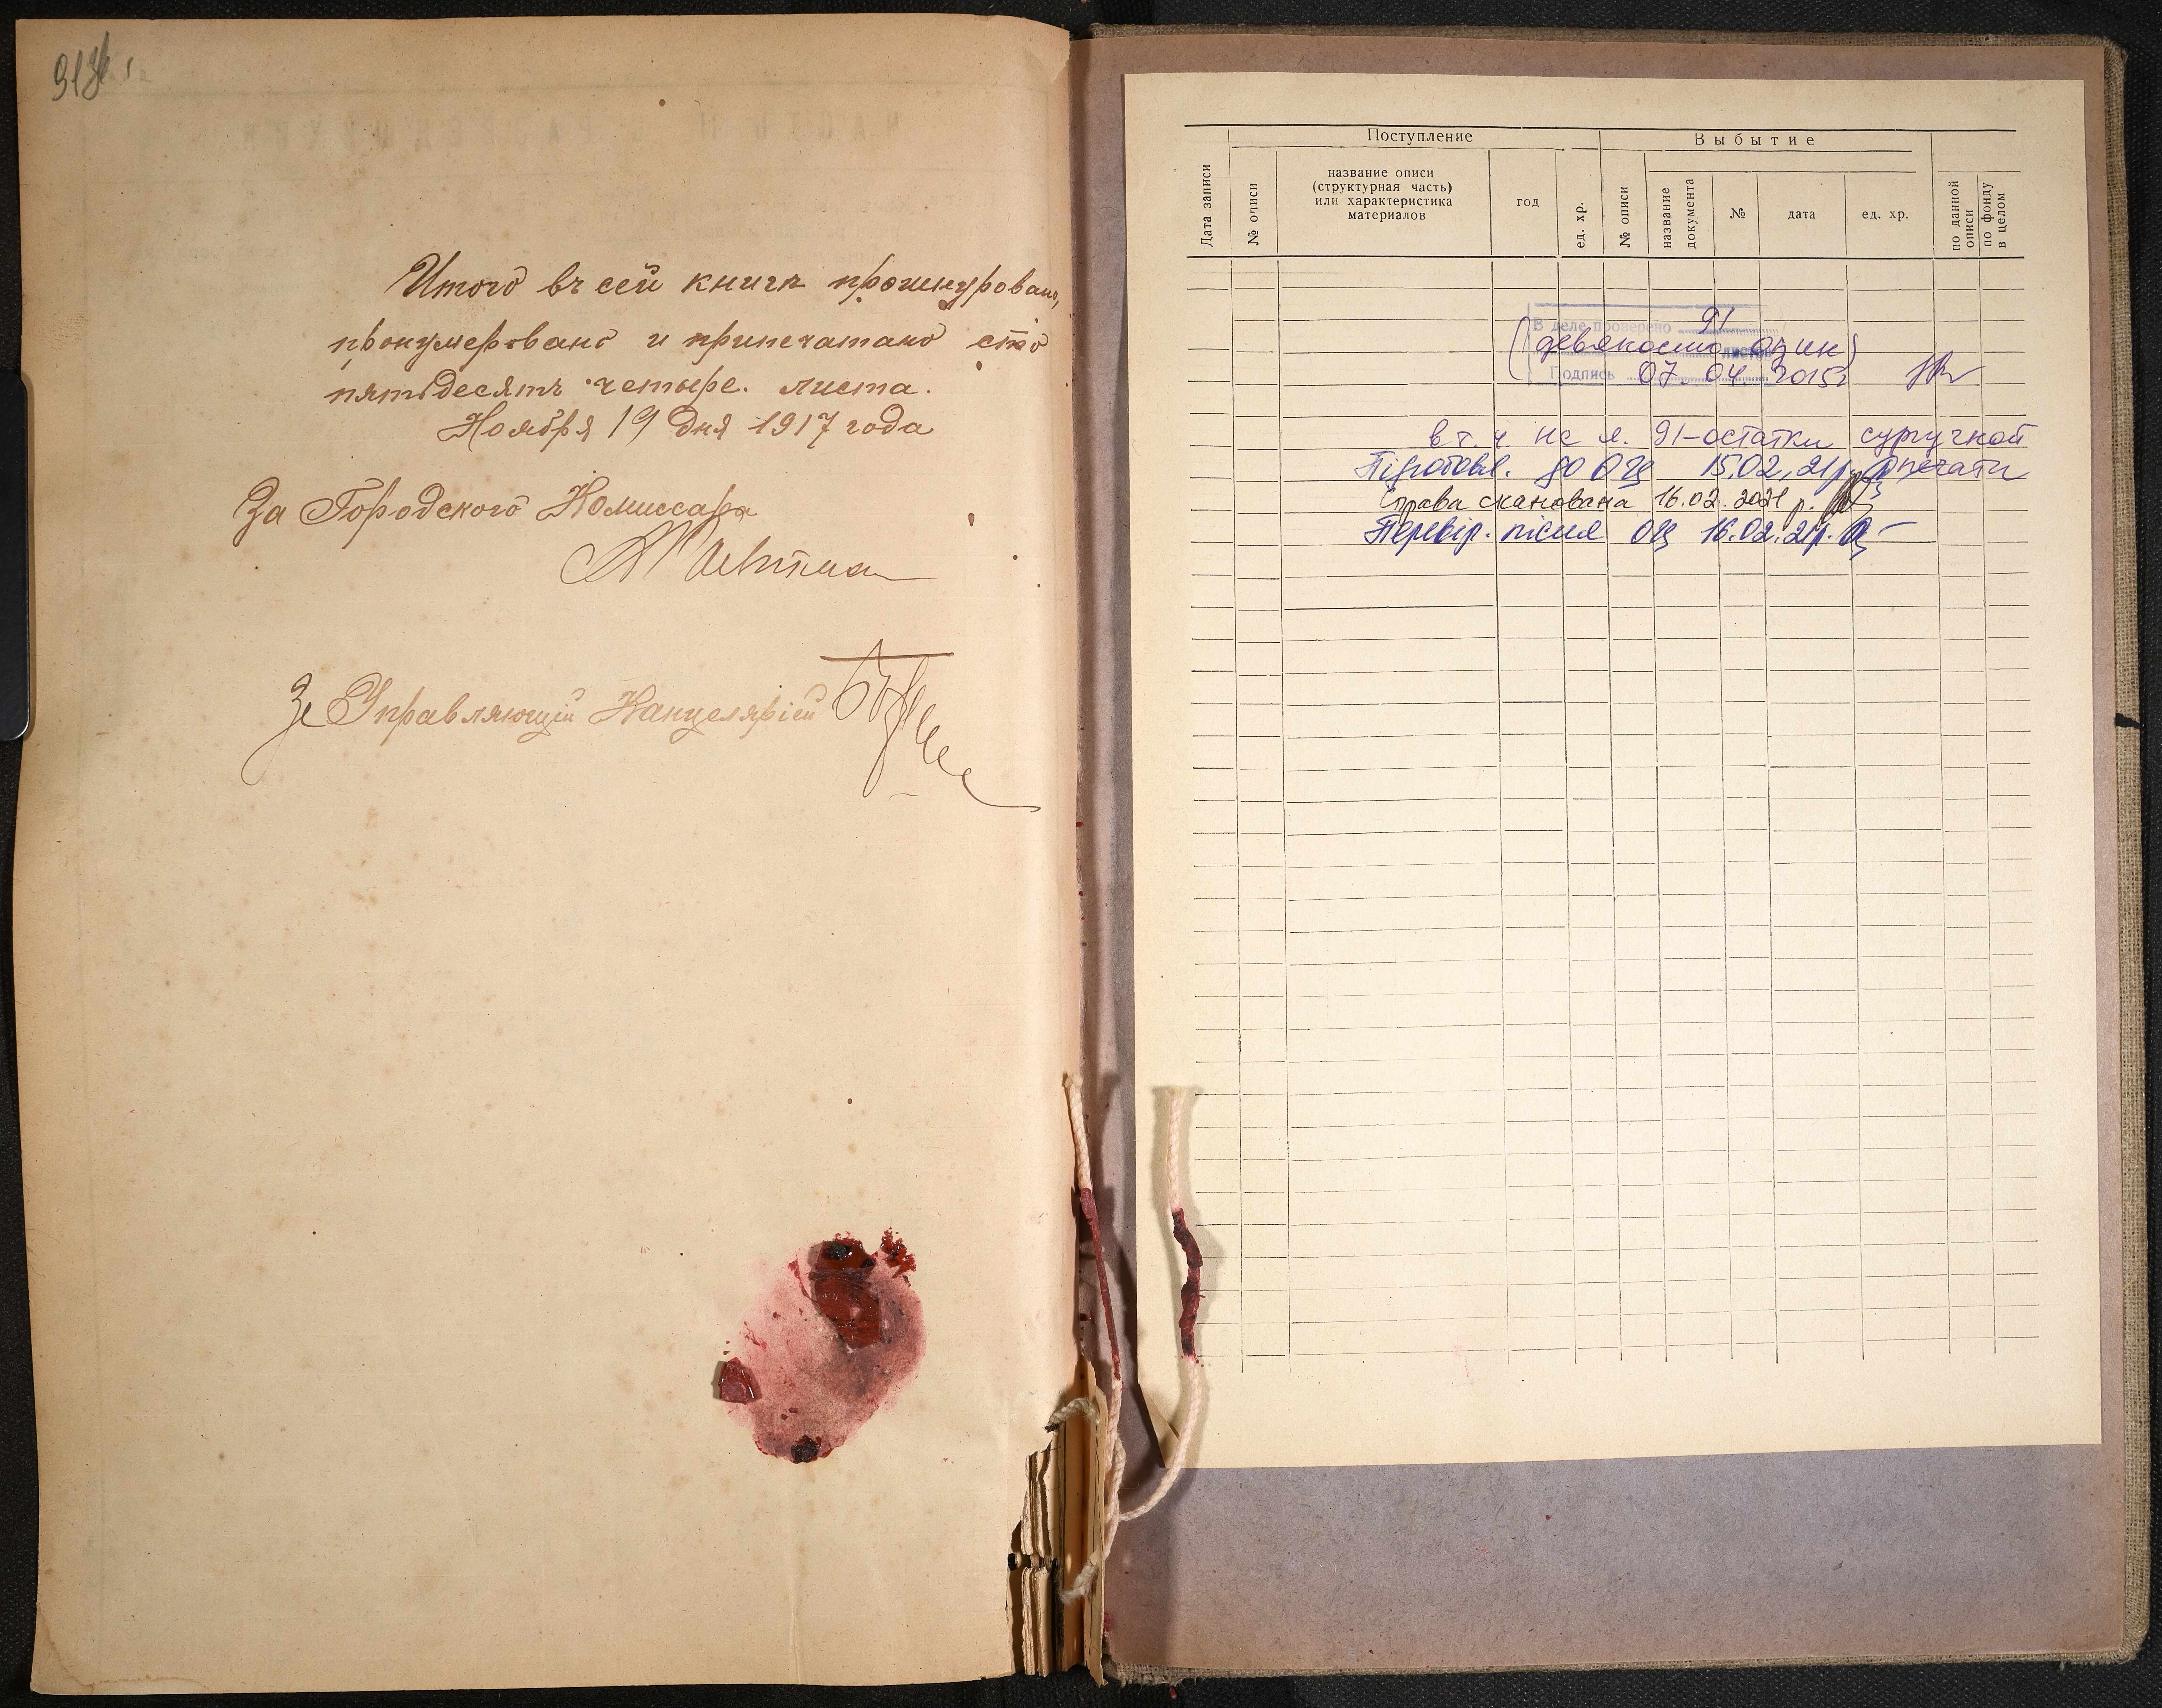 Итого въ сей книгѣ прошнуровано,
пронумеровано и припечатано сто
пятьдесятъ четыре. листа.
Ноября 19 дня 1917 года
За Городского Комиссара
За Управляющій Канцеляріей
Поступление
Выбытие
Дата записи
№ описи
название описи
(структурная часть)
или характеристика
материалов
год
ед. хр.
№ описи
название
документа
№
дата
ед. хр.
по данной
описи
по фонду
в целом
В деле проверено 91
(девяносто один) листов
Подпись 07.04.2015г
в т.ч на л. 91-остатки сургучной
печати
Підготовл. до ОЦ 15.02.21р.
Справа сканована 16.02.2021 р.
Перевір. після ОЦ 16.02.21р.